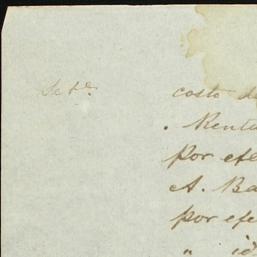 Sete. costo d
. Renta
por efe
A. Ba
por efe
" id